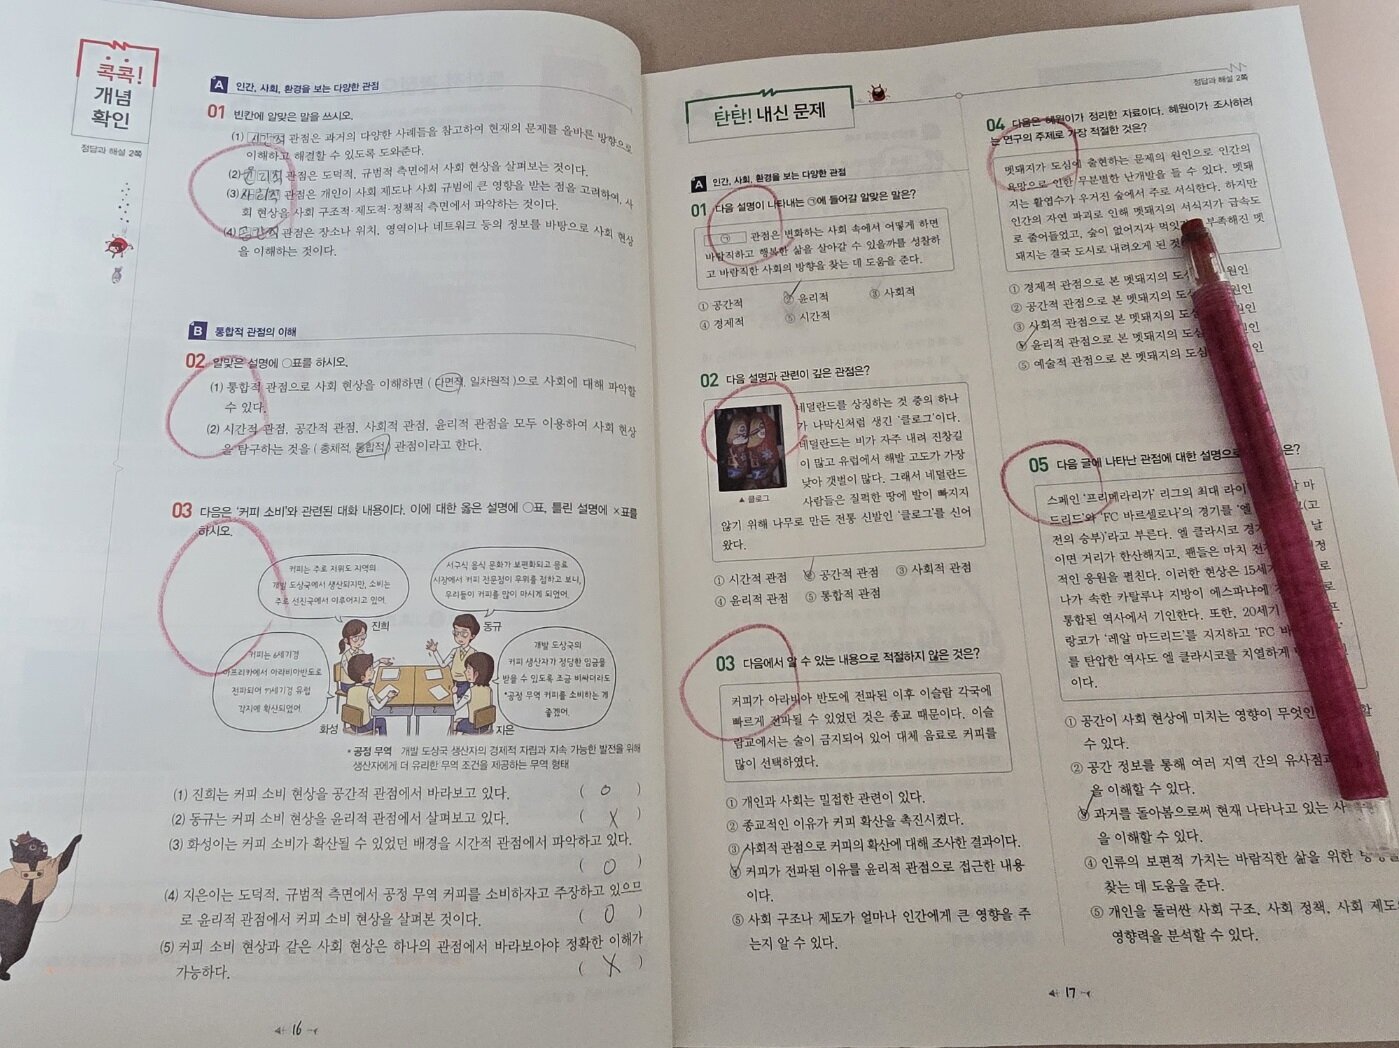 콕콕!
개념
확인
정답과 해설 2쪽
A 인간, 사회, 환경을 보는 다양한 관점
01 빈칸에 알맞은 말을 쓰시오.
(1) 시간적 관점은 과거의 다양한 사례들을 참고하여 현재의 문제를 올바른 방향으로
이해하고 해결할 수 있도록 도와준다.
(2) 윤리적 관점은 도덕적, 규범적 측면에서 사회 현상을 살펴보는 것이다.
(3) 사회적 관점은 개인이 사회 제도나 사회 규범에 큰 영향을 받는 점을 고려하여, 사
회 현상을 사회 구조적·제도적·정책적 측면에서 파악하는 것이다.
(4) 공간적 관점은 장소나 위치, 영역이나 네트워크 등의 정보를 바탕으로 사회 현상
을 이해하는 것이다.
B 통합적 관점의 이해
02 알맞은 설명에 ○표를 하시오.
(1) 통합적 관점으로 사회 현상을 이해하면 ( 다면적, 일차원적 )으로 사회에 대해 파악할
수 있다.
(2) 시간적 관점, 공간적 관점, 사회적 관점, 윤리적 관점을 모두 이용하여 사회 현상
을 탐구하는 것을 ( 총체적, 통합적 ) 관점이라고 한다.
03 다음은 '커피 소비'와 관련된 대화 내용이다. 이에 대한 옳은 설명에 ○표, 틀린 설명에 ×표를
하시오.
커피는 주로 저위도 지역의
개발 도상국에서 생산되지만, 소비는
주로 선진국에서 이루어지고 있어.
진희
서구식 음식 문화가 보편화되고 음료
시장에서 커피 전문점이 우위를 점하고 보니,
우리들이 커피를 많이 마시게 되었어.
동규
커피는 6세기경
아프리카에서 아라비아반도로
전파되어 17세기경 유럽
각지에 확산되었어.
화성
개발 도상국의
커피 생산자가 정당한 임금을
받을 수 있도록 조금 비싸더라도
*공정 무역 커피를 소비하는 게
좋겠어.
지은
* 공정 무역 개발 도상국 생산자의 경제적 자립과 지속 가능한 발전을 위해
생산자에게 더 유리한 무역 조건을 제공하는 무역 형태
(1) 진희는 커피 소비 현상을 공간적 관점에서 바라보고 있다. ( O )
(2) 동규는 커피 소비 현상을 윤리적 관점에서 살펴보고 있다. ( X )
(3) 화성이는 커피 소비가 확산될 수 있었던 배경을 시간적 관점에서 파악하고 있다.
( O )
(4) 지은이는 도덕적, 규범적 측면에서 공정 무역 커피를 소비하자고 주장하고 있으므
로 윤리적 관점에서 커피 소비 현상을 살펴본 것이다. ( O )
(5) 커피 소비 현상과 같은 사회 현상은 하나의 관점에서 바라보아야 정확한 이해가
가능하다. ( X )
16
탄탄! 내신 문제
정답과 해설 2쪽
A 인간, 사회, 환경을 보는 다양한 관점
01 다음 설명이 나타내는 ㉠에 들어갈 알맞은 말은?
㉠ 관점은 변화하는 사회 속에서 어떻게 하면
바람직하고 행복한 삶을 살아갈 수 있을까를 성찰하
고 바람직한 사회의 방향을 찾는 데 도움을 준다.
① 공간적 ② 윤리적 ③ 사회적
④ 경제적 ⑤ 시간적
02 다음 설명과 관련이 깊은 관점은?
네덜란드를 상징하는 것 중의 하나
가 나막신처럼 생긴 '클로그'이다.
네덜란드는 비가 자주 내려 진창길
이 많고 유럽에서 해발 고도가 가장
낮아 갯벌이 많다. 그래서 네덜란드
사람들은 질퍽한 땅에 발이 빠지지
▲ 클로그
않기 위해 나무로 만든 전통 신발인 '클로그'를 신어
왔다.
① 시간적 관점 ② 공간적 관점 ③ 사회적 관점
④ 윤리적 관점 ⑤ 통합적 관점
03 다음에서 알 수 있는 내용으로 적절하지 않은 것은?
커피가 아라비아 반도에 전파된 이후 이슬람 각국에
빠르게 전파될 수 있었던 것은 종교 때문이다. 이슬
람교에서는 술이 금지되어 있어 대체 음료로 커피를
많이 선택하였다.
① 개인과 사회는 밀접한 관련이 있다.
② 종교적인 이유가 커피 확산을 촉진시켰다.
③ 사회적 관점으로 커피의 확산에 대해 조사한 결과이다.
④ 커피가 전파된 이유를 윤리적 관점으로 접근한 내용
이다.
⑤ 사회 구조나 제도가 얼마나 인간에게 큰 영향을 주
는지 알 수 있다.
04 다음은 혜원이가 정리한 자료이다. 혜원이가 조사하려
는 연구의 주제로 가장 적절한 것은?
멧돼지가 도심에 출현하는 문제의 원인으로 인간의
욕망으로 인한 무분별한 난개발을 들 수 있다. 멧돼
지는 활엽수가 우거진 숲에서 주로 서식한다. 하지만
인간의 자연 파괴로 인해 멧돼지의 서식지가 급속도
로 줄어들었고, 숲이 없어지자 먹잇 부족해진 멧
돼지는 결국 도시로 내려오게 된
① 경제적 관점으로 본 멧돼지의 도심 원인
② 공간적 관점으로 본 멧돼지의 도심 원인
③ 사회적 관점으로 본 멧돼지의 도심 원인
④ 윤리적 관점으로 본 멧돼지의 도심 원인
⑤ 예술적 관점으로 본 멧돼지의 도심 원인
05 다음 글에 나타난 관점에 대한 설명으로 은?
스페인 '프리메라리가' 리그의 최대 라이 마
드리드'와 'FC 바르셀로나'의 경기를 '엘 (고
전의 승부)'라고 부른다. 엘 클라시코 경기 날
이면 거리가 한산해지고, 팬들은 마치 정
적인 응원을 펼친다. 이러한 현상은 15세기 로
나가 속한 카탈루냐 지방이 에스파냐에 로
통합된 역사에서 기인한다. 또한, 20세기 프
랑코가 '레알 마드리드'를 지지하고 'FC 바
를 탄압한 역사도 엘 클라시코를 치열하게
이다.
① 공간이 사회 현상에 미치는 영향이 무엇인 할
수 있다.
② 공간 정보를 통해 여러 지역 간의 유사점과
을 이해할 수 있다.
③ 과거를 돌아봄으로써 현재 나타나고 있는 사
을 이해할 수 있다.
④ 인류의 보편적 가치는 바람직한 삶을 위한
찾는 데 도움을 준다.
⑤ 개인을 둘러싼 사회 구조, 사회 정책, 사회 제도
영향력을 분석할 수 있다.
17